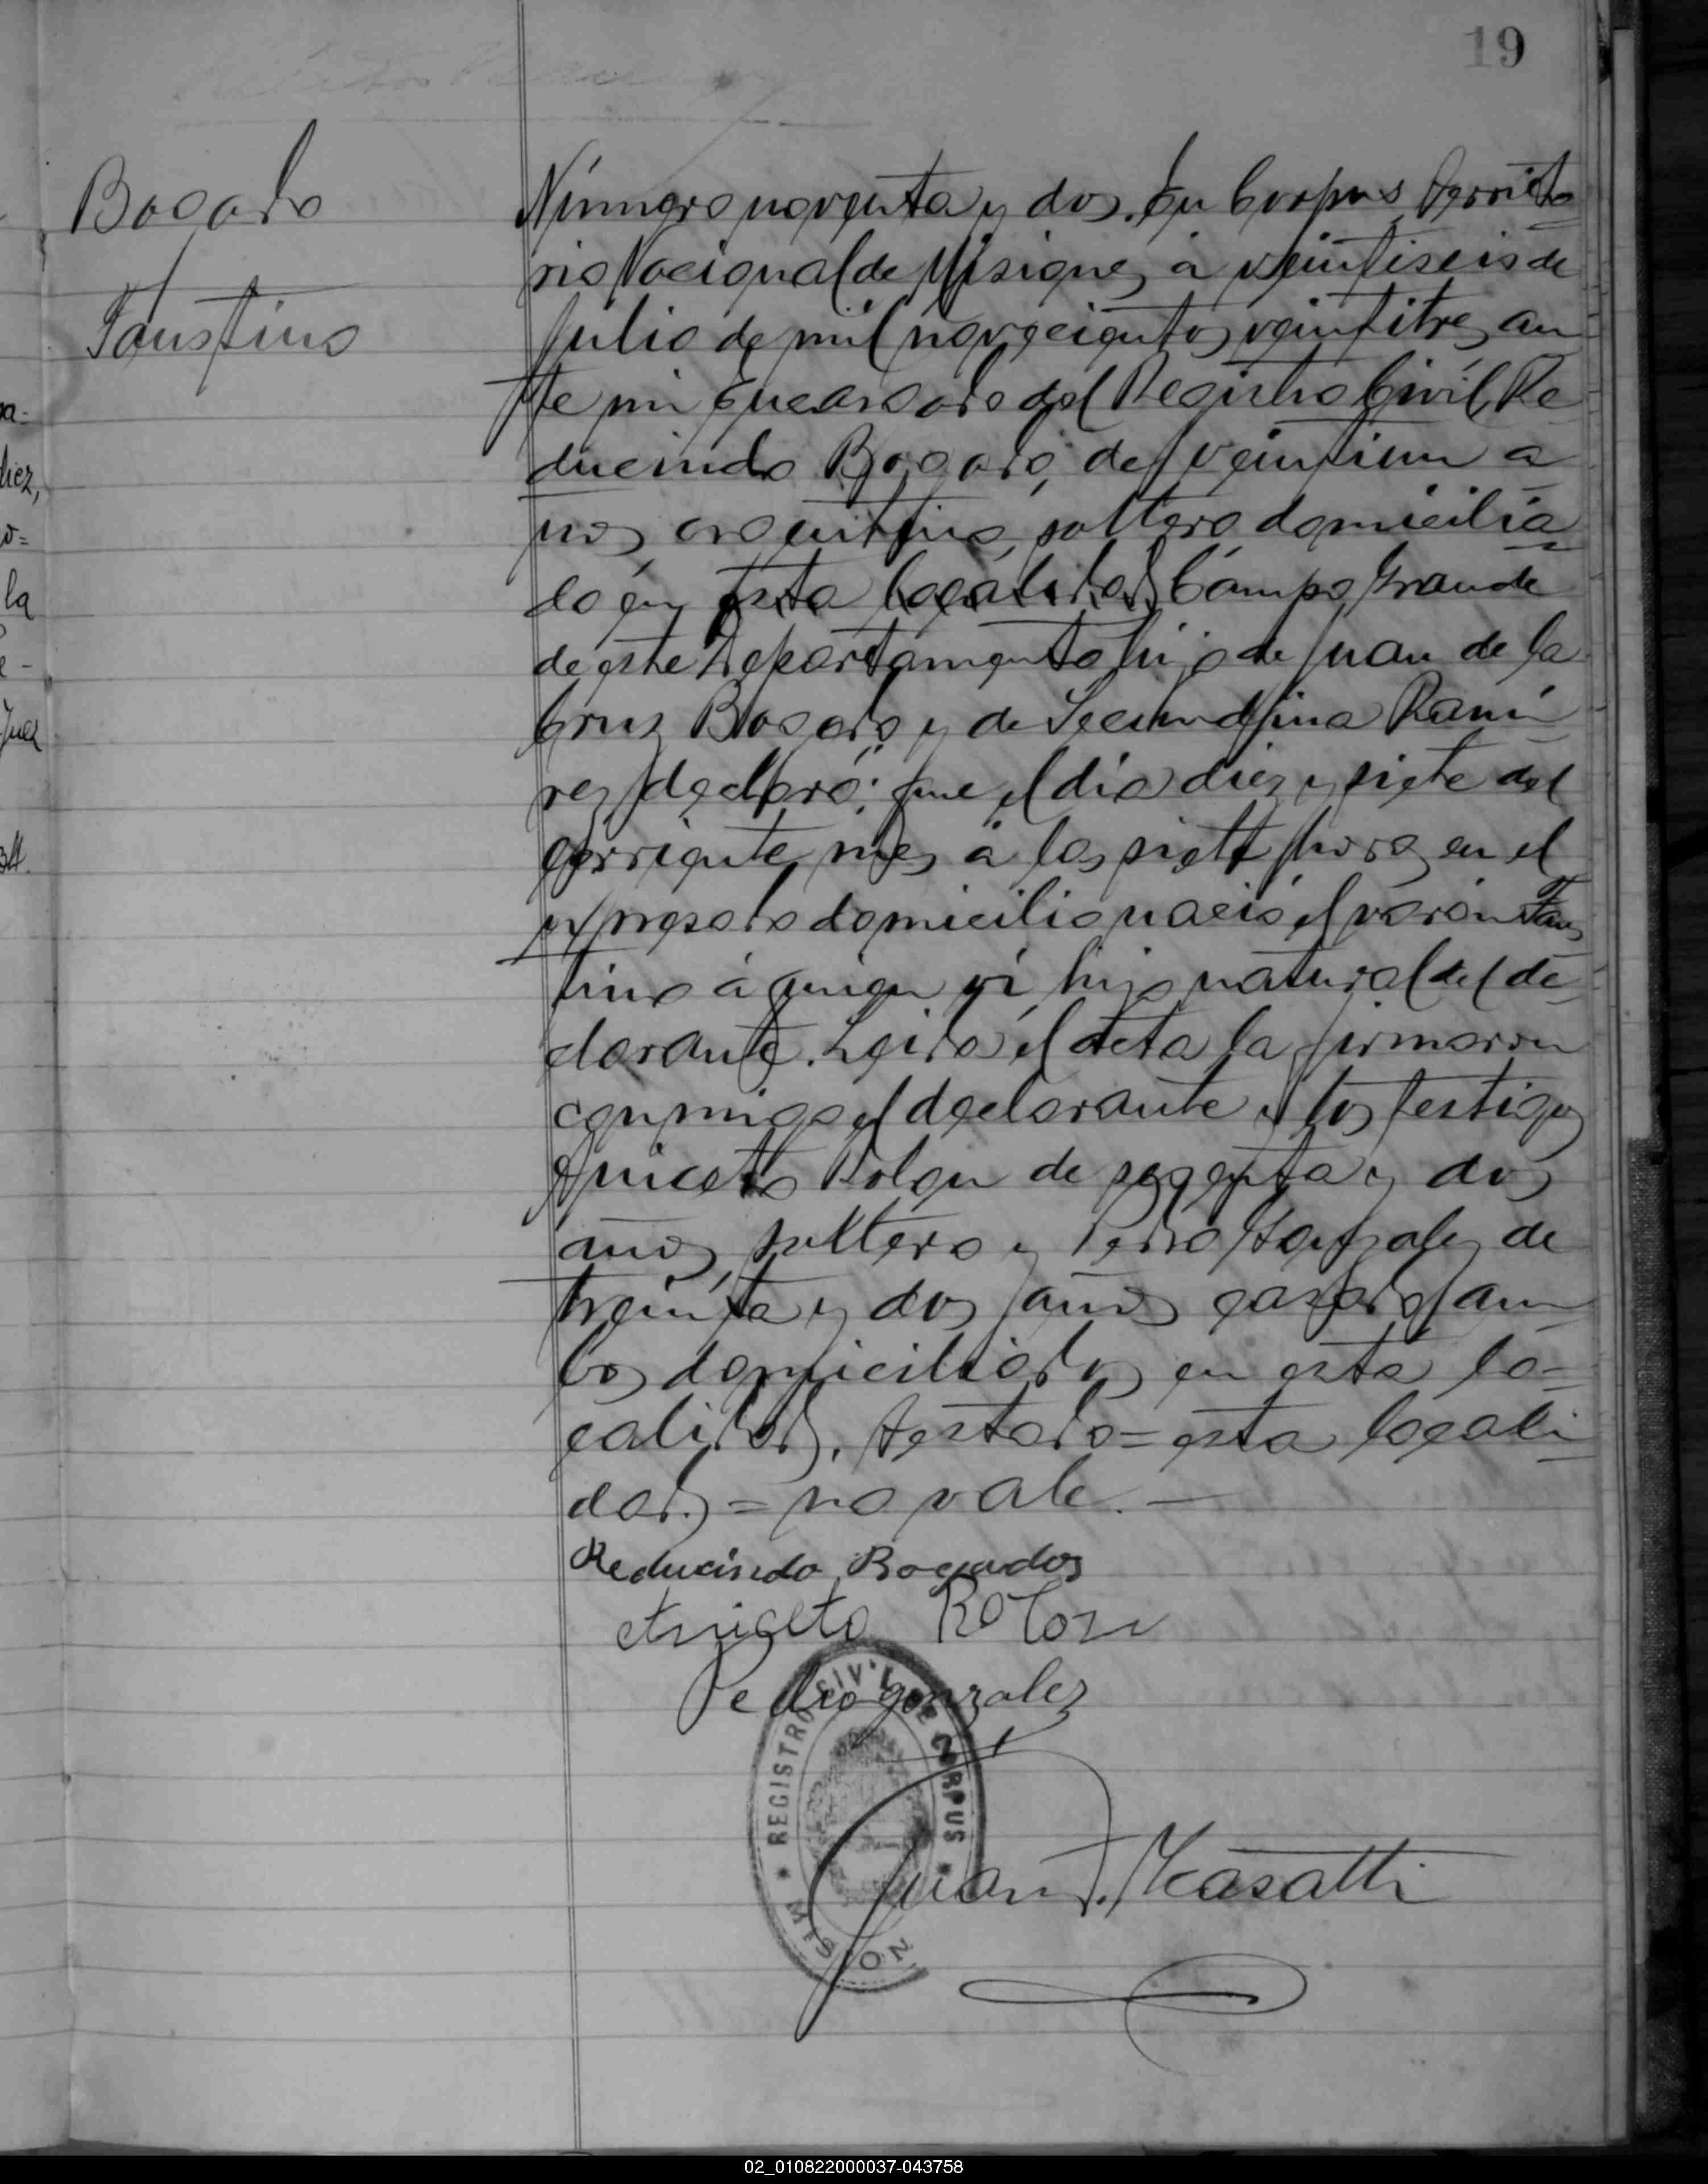 19
Bogado
Faustino
Número noventa y dos. En Corpus, Territo
rio Nacional de Misiones, á veintiseis de
Julio de mil novecientos veintitres, an
te mi Encargado del Registro Civil, Re
ducindo Bogado, de veintiun a
ños, argentino, soltero domicilia
do en esta localidad Campo Grande
de este Departamento hijo de Juan de la
Cruz Bogado y de Secundina Rami
rez declaró: que el día diez y siete del
corriente mes á las siete horas en el
expresado domicilio nació el varón Faus
tino á quien ví hijo natural del de
clarante. Leida el acta la firmaron
conmigo el declarante y los testigos
Aniceto Rolon de sesenta y dos
años, soltero y Pedro Gonzalez de
treinta y dos años casado am
bos domiciliados en esta lo=
calidad. Testado=esta locali
dad.=no vale.—
Reducindo Bogados
Aniceto Rolon
Pedro gonzalez
REGISTRO CIVIL DE CORPUS
MISIONES
Juan
02_010822000037-043758